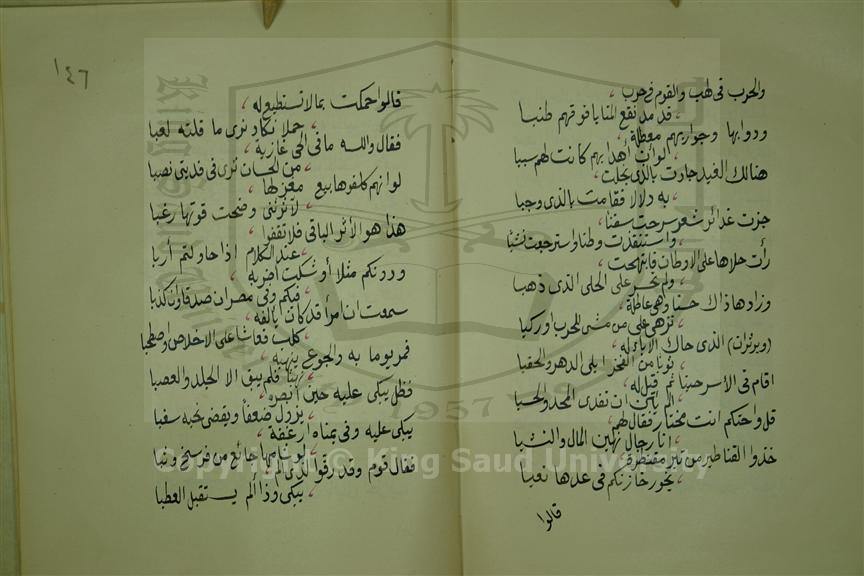 والحرب فى لهب والقوم فى حرب
قد مد نقع المنايا فوقهم طنبا
ودوابها وجواريهم معطلة
لو أن أهدابهم كانت لهم سببا
هنالك الغيد جادت بالذى بخلت
به دلال فقامت بالذى وجبا
جزت غدائر شعر سرحت سفنا
واستنقذت وطنا واسترجعت نشبا
رأت حلاها على الأوطان فابتهجت
ولم تحسر على الحلى الذى ذهبا
وزادها ذاك حسنا وهى عاطلة
تزهى على من مشى للحرب أو ركبا
(وبرثران) الذى حاك الاباء له
ثوبا من الفخر ابلى الدهر والحقبا
اقام فى الأسر حينا ثم قيل له
ألم يأن ان تفدى المجد والحسبا
قل واحتكم انت مختار فقال لهم
انا رجال نهين المال والنشبا
خذوا القناطير من تبر مقنطرة
يخور خازنكم فى عدها تعبا
قالوا
١٤٦
قالوا حكمت بما لا تستطيع له
حملا نكاد نرى ما قلته لعبا
فقال والله ما فى الحى غازية
من الحسان ترى فى فديتى نصبا
لو انهم كلفوها بيع مغزلها
لآثرتنى وضحت قوتها رغبا
هذا هو الأثر الباقى فلا تقفوا
عند الكلام اذا حاولتم أربا
ودونكم مثلا أوشكت أضربه
فيكم وفى مصر ان صدقا وان كذبا
سمعت ان امرأ قد كان يالفه
كلب فعاشا على الاخلاص واصطحبا
فمر يوما به والجوع ينهبه
نهبا فلم يبق الا الجلد والعصبا
فظل يبكى عليه حين أبصره
يزول ضعفا ويقضى نحبه سغبا
يبكى عليه وفى يمناه أرغفة
لو شامها جائع من فرسخ وثبا
فقال قوم وقد رقوا لذى ألم
يبكى وذا ألم يستقبل العطبا
Copyright © King Saud University
1957